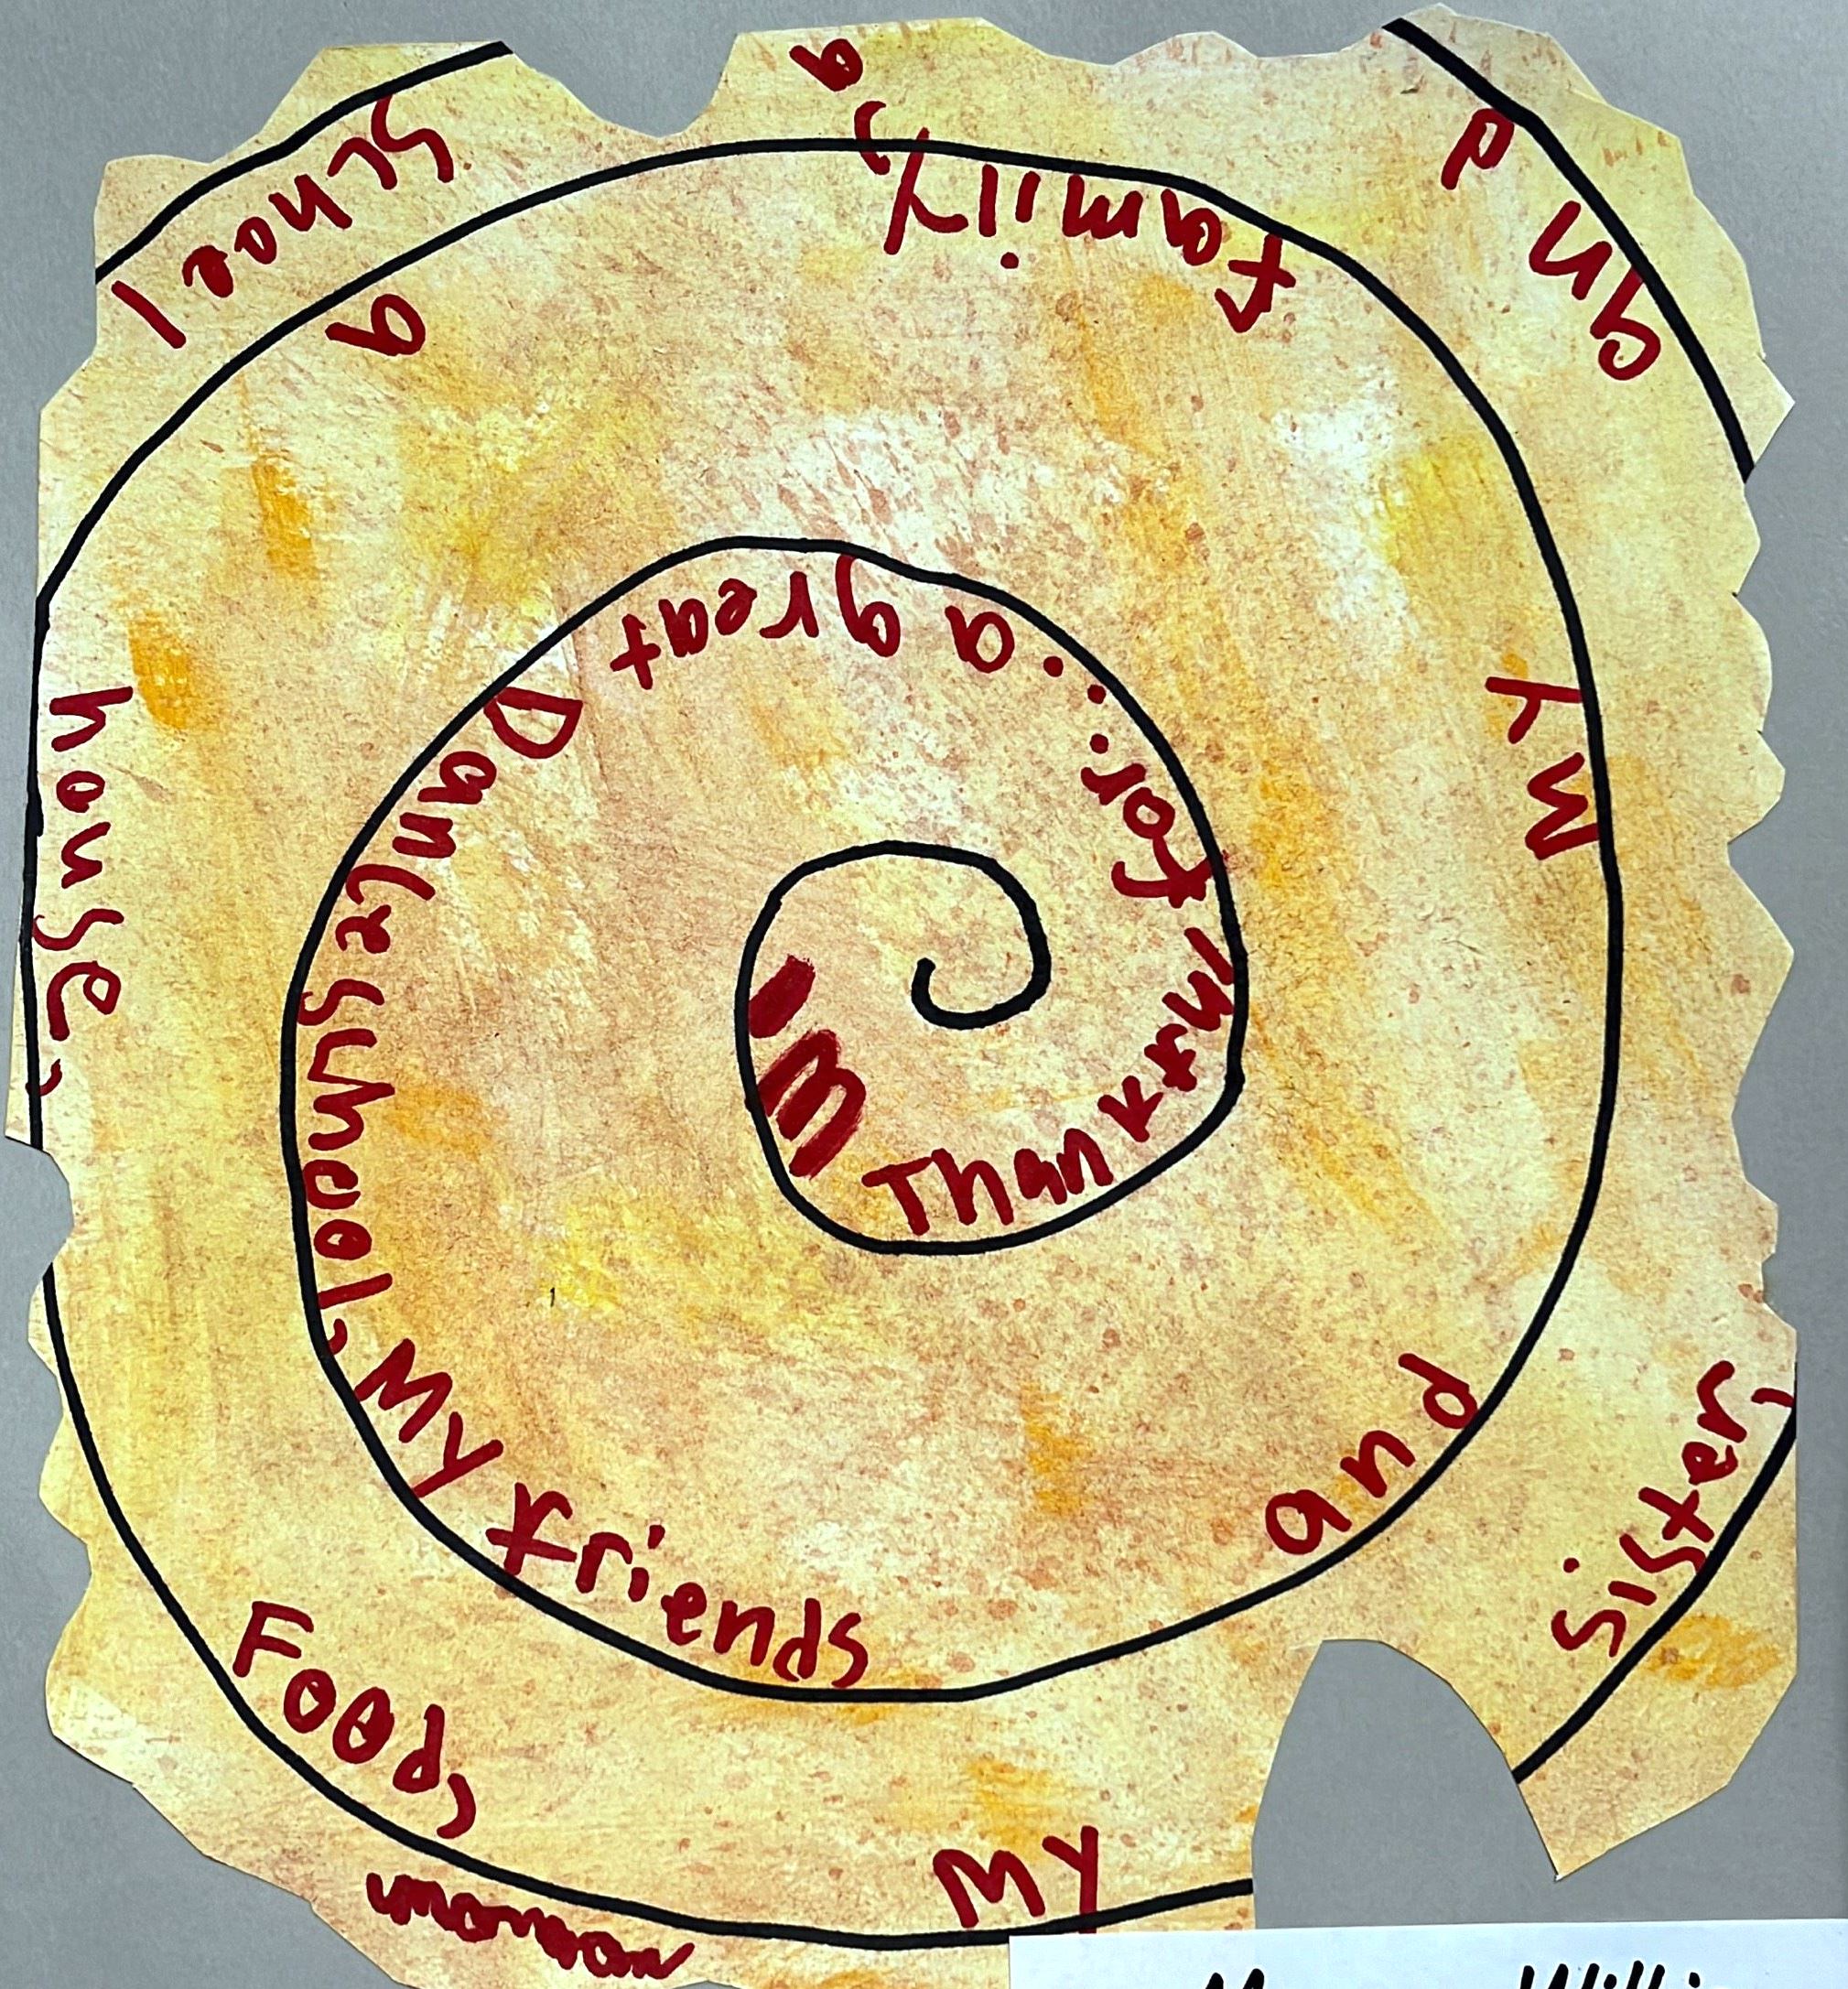 I'm Thankful for... a great Dance school, My friends and My family, a house, Food, My Sister, and a School